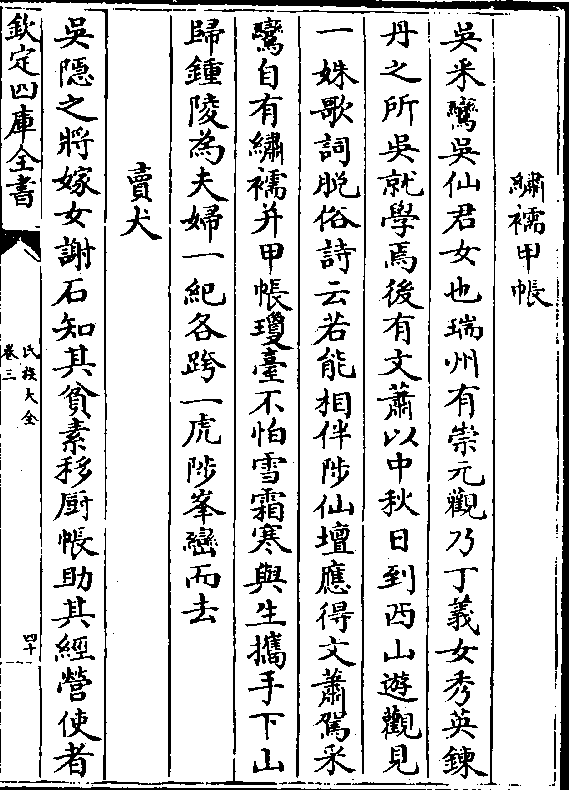 繡襦甲帳
吳釆鸞吳仙君女也瑞州有崇元觀乃丁義女秀英鍊
丹之所吳就學焉後有文蕭以中秋日到西山遊觀見
一姝歌詞脫俗詩云若能相伴陟仙壇應得文蕭駕釆
鸞自有繡襦并甲帳瓊臺不怕雪霜寒與生攜手下山
歸鍾陵為夫婦一紀各跨一虎陟峯巒而去
賣犬
吳隱之將嫁女謝石知其貧素移厨帳助其經營使者
欽定四庫全書
氏族大全
卷三
四十